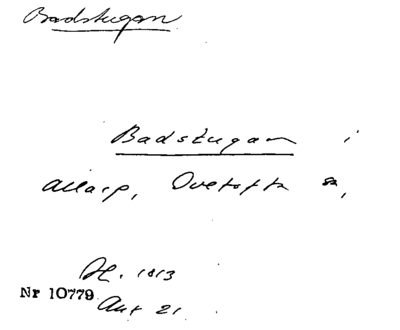 Badstugan
Badstugan i
allarp, Ovetofta sn,
H. 1813
Nr 10779
Akt 21